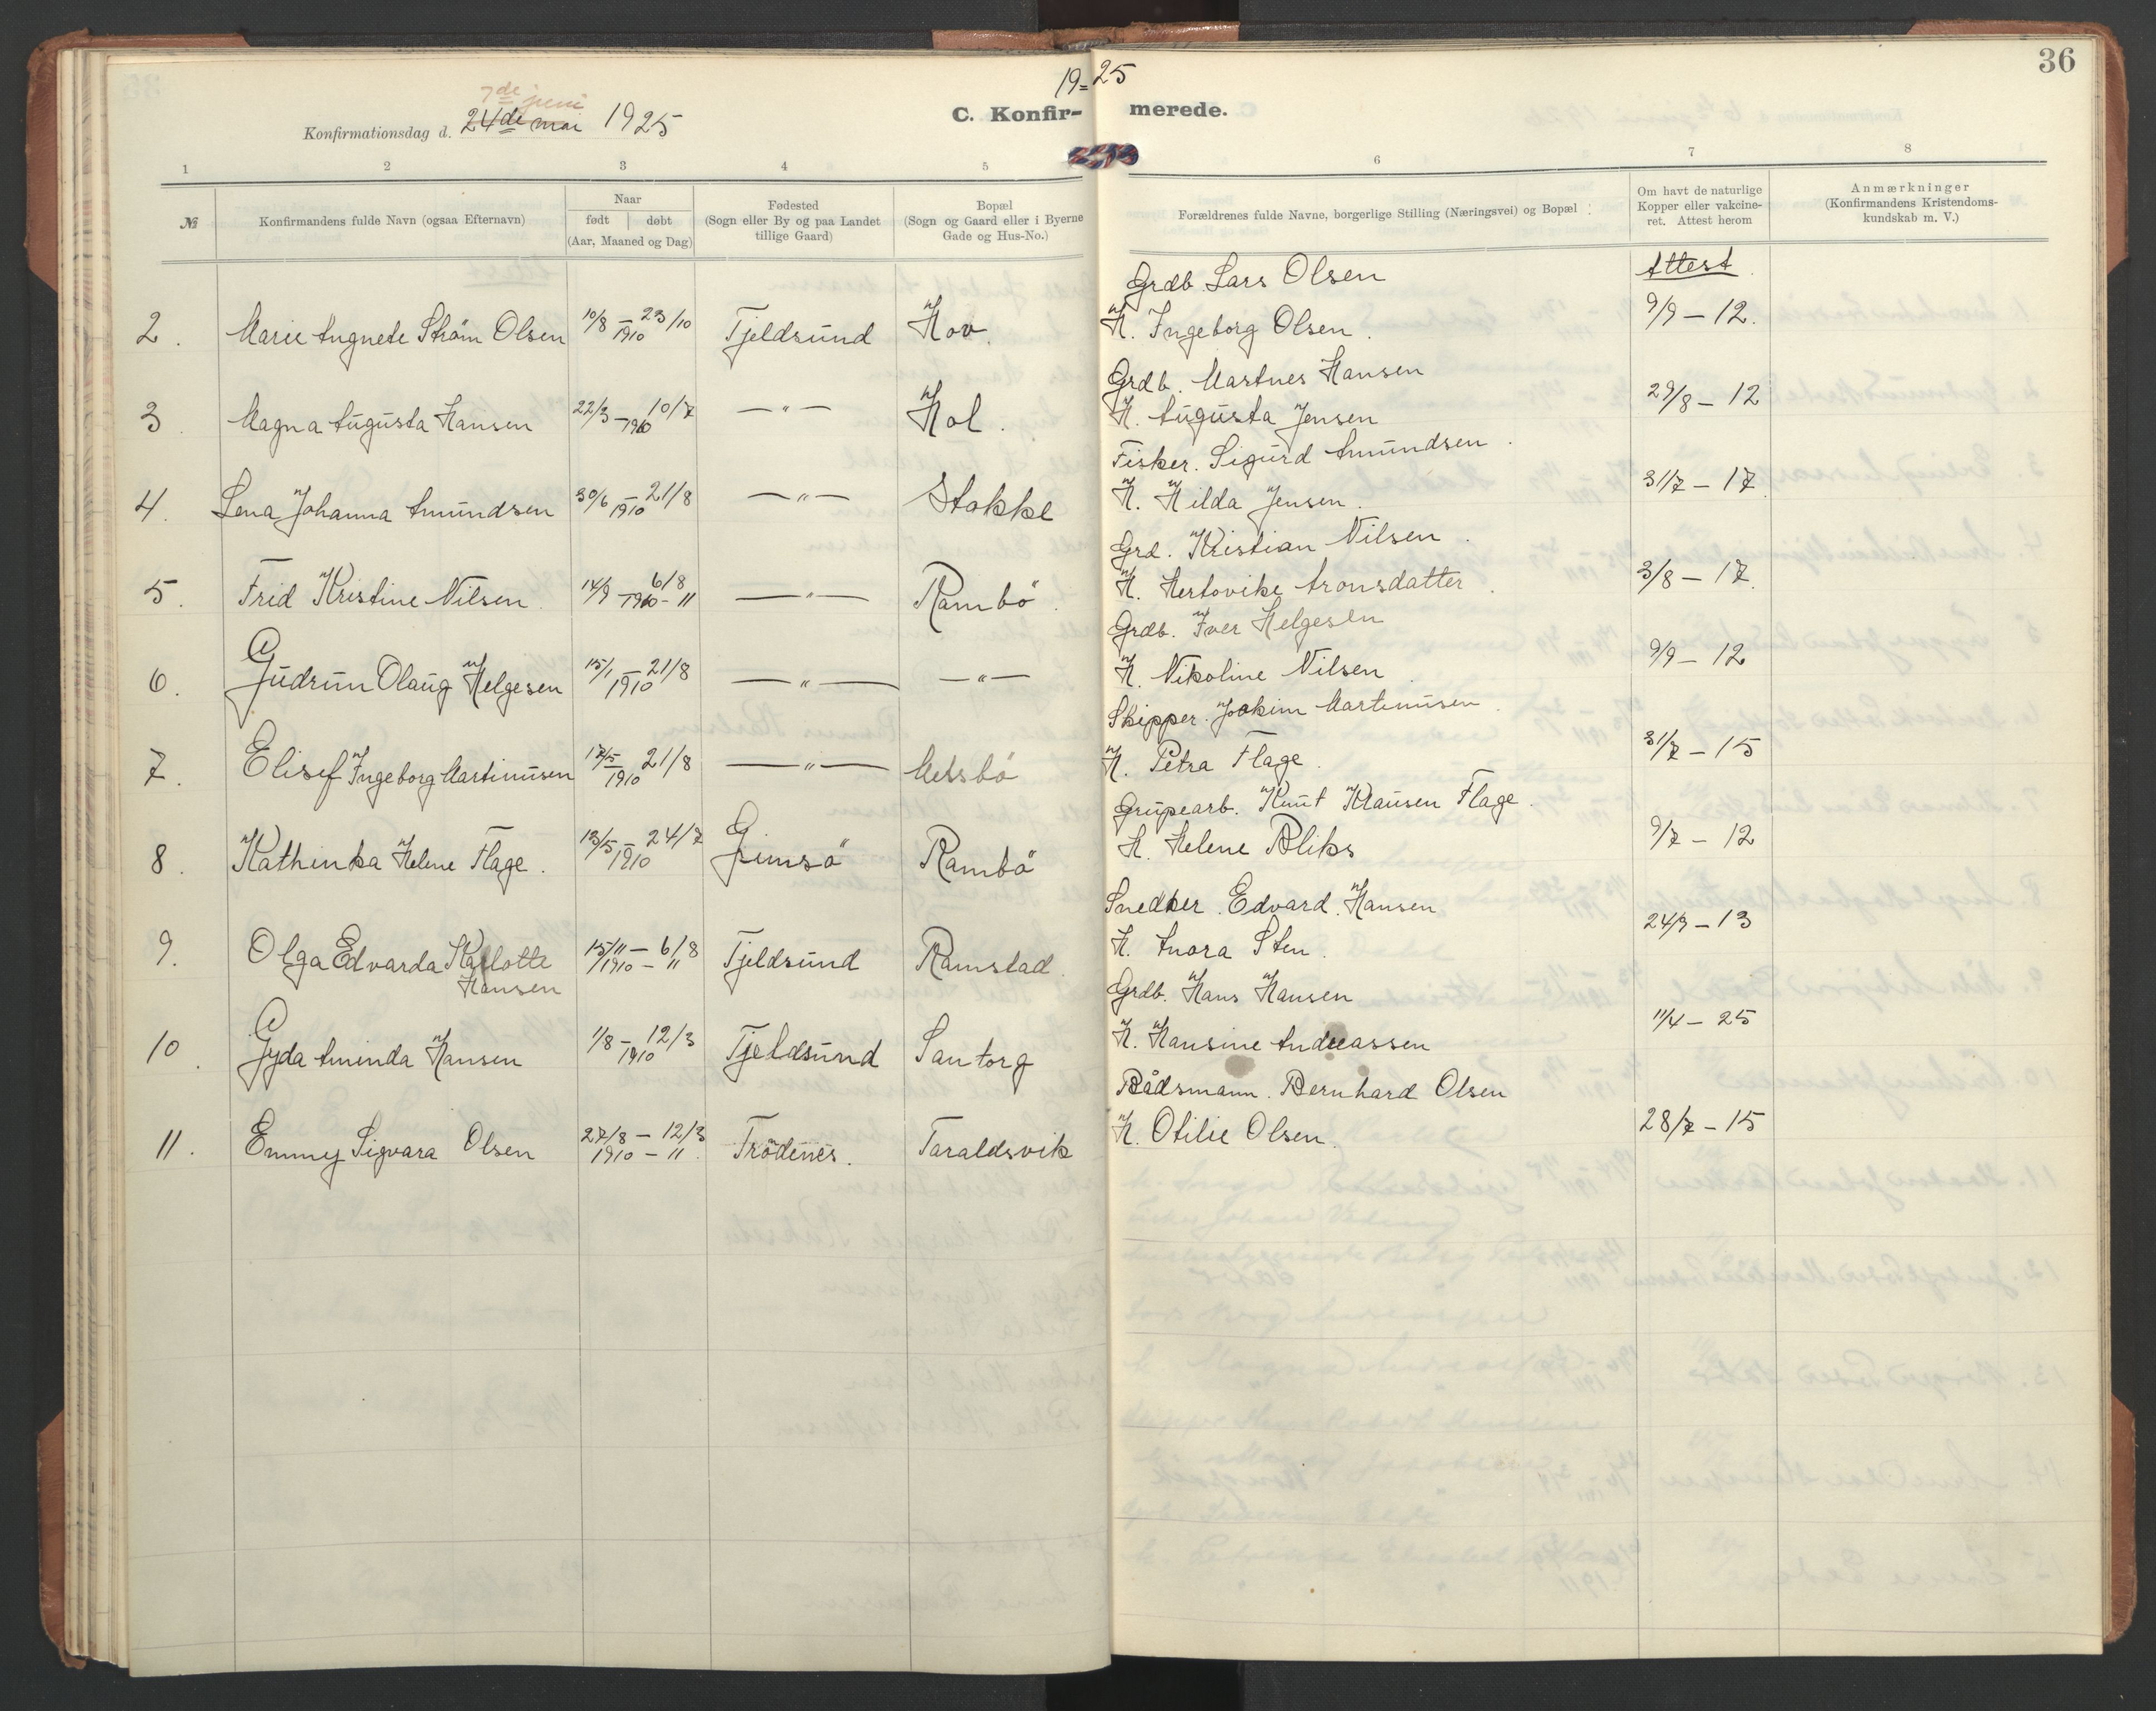 36
19=25
7de juni
Konfirmationsdag d. 24de mai 1925
C. Konfir- merede.
1 2 3 4 5 6 7 8
№
Konfirmandens fulde Navn (ogsaa Efternavn)
Naar
født | døbt
(Aar, Maaned og Dag)
Fødested
(Sogn eller By og paa Landet
tillige Gaard)
Bopæl
(Sogn og Gaard eller i Byerne
Gade og Hus-No.)
Forældrenes fulde Navne, borgerlige Stilling (Næringsvei) og Bopæl
Om havt de naturlige
Kopper eller vakcine-
ret. Attest herom
Anmærkninger
(Konfirmandens Kristendoms-
kundskab m. V.)
Attest
Grdb. Lars Olsen
2. Marie Angnete Ström Olsen 10/8 – 23/10 Tjeldsund Hov. H. Ingeborg Olsen. 9/9 – 12.
1910
Grdb. Martnes Hansen
3. Magna Augusta Hansen 22/3 – 10/7 — " — Hol. H. Augusta Jensen 29/8 – 12
1910
Fisker. Sigurd Amundsen.
4. Lena Johanna Amundsen 30/6 – 21/8 — " — Stokke H. Hilda Jensen. 31/7 – 17.
1910
Grd. Kristian Nilsen.
5. Frid Kristine Nilsen. 14/9 – 6/8 — " — Rambö. H. Hertovike Aronsdatter. 3/8 – 17.
1910 – 11
Grdb. Iver Helgesen
6. Gudrun Olaug Helgesen 15/1 – 21/8 — " — — " — H. Nikoline Nilsen. 9/9 – 12
1910
Skipper. Joakim Martinusen.
7. Elisef Ingeborg Martinusen 17/5 – 21/8 — " — Messbö H. Petra Flage. 31/7 – 15
1910
Grupearb. Knut Klausen Flage.
8. Kathinka Helene Flage. 13/5 – 24/7 Gimsö Rambö H. Helene Bliks 9/7 – 12
1910
Snedker. Edvard. Hansen
9. Olga Edvarda Karlotte 15/11 – 6/8 Tjeldsund Ramstad. H. Anora Sten. 24/9 – 13
Hansen 1910 – 11
Grdb. Hans Hansen
10. Gyda Aminda Hansen 1/8 – 12/3 Tjeldsund Santorg H. Hansine Andreassen 11/4 – 25
1910
Bådsmann. Bernhard Olsen
11. Emmy Sigvara Olsen 27/8 – 12/3 Trödenes. Taraldsvik H. Otilie Olsen. 28/7 – 15
1910 – 11.